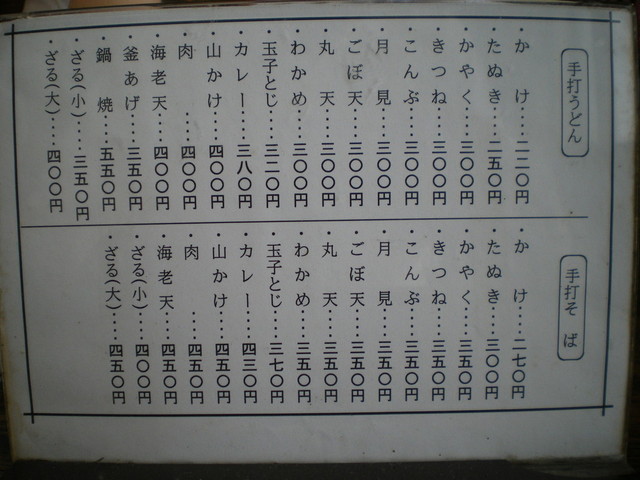 手打うどん
・かけ・・・・二二〇円
・たぬき・・・・二五〇円
・かやく・・・・三〇〇円
・きつね・・・・三〇〇円
・こんぶ・・・・三〇〇円
・月見・・・・三〇〇円
・ごぼ天・・・・三〇〇円
・丸天・・・・三〇〇円
・わかめ・・・・三〇〇円
・玉子とじ・・・・三二〇円
・カレー・・・・三八〇円
・山かけ・・・・四〇〇円
・肉・・・・四〇〇円
・海老天・・・・四〇〇円
・釜あげ・・・・三五〇円
・鍋焼・・・・五五〇円
・ざる(小)・・・・三五〇円
・ざる(大)・・・・四〇〇円
手打そば
・かけ・・・・二七〇円
・たぬき・・・・三〇〇円
・かやく・・・・三五〇円
・きつね・・・・三五〇円
・こんぶ・・・・三五〇円
・月見・・・・三五〇円
・ごぼ天・・・・三五〇円
・丸天・・・・三五〇円
・わかめ・・・・三五〇円
・玉子とじ・・・・三七〇円
・カレー・・・・四三〇円
・山かけ・・・・四五〇円
・肉・・・・四五〇円
・海老天・・・・四五〇円
・ざる(小)・・・・四〇〇円
・ざる(大)・・・・四五〇円